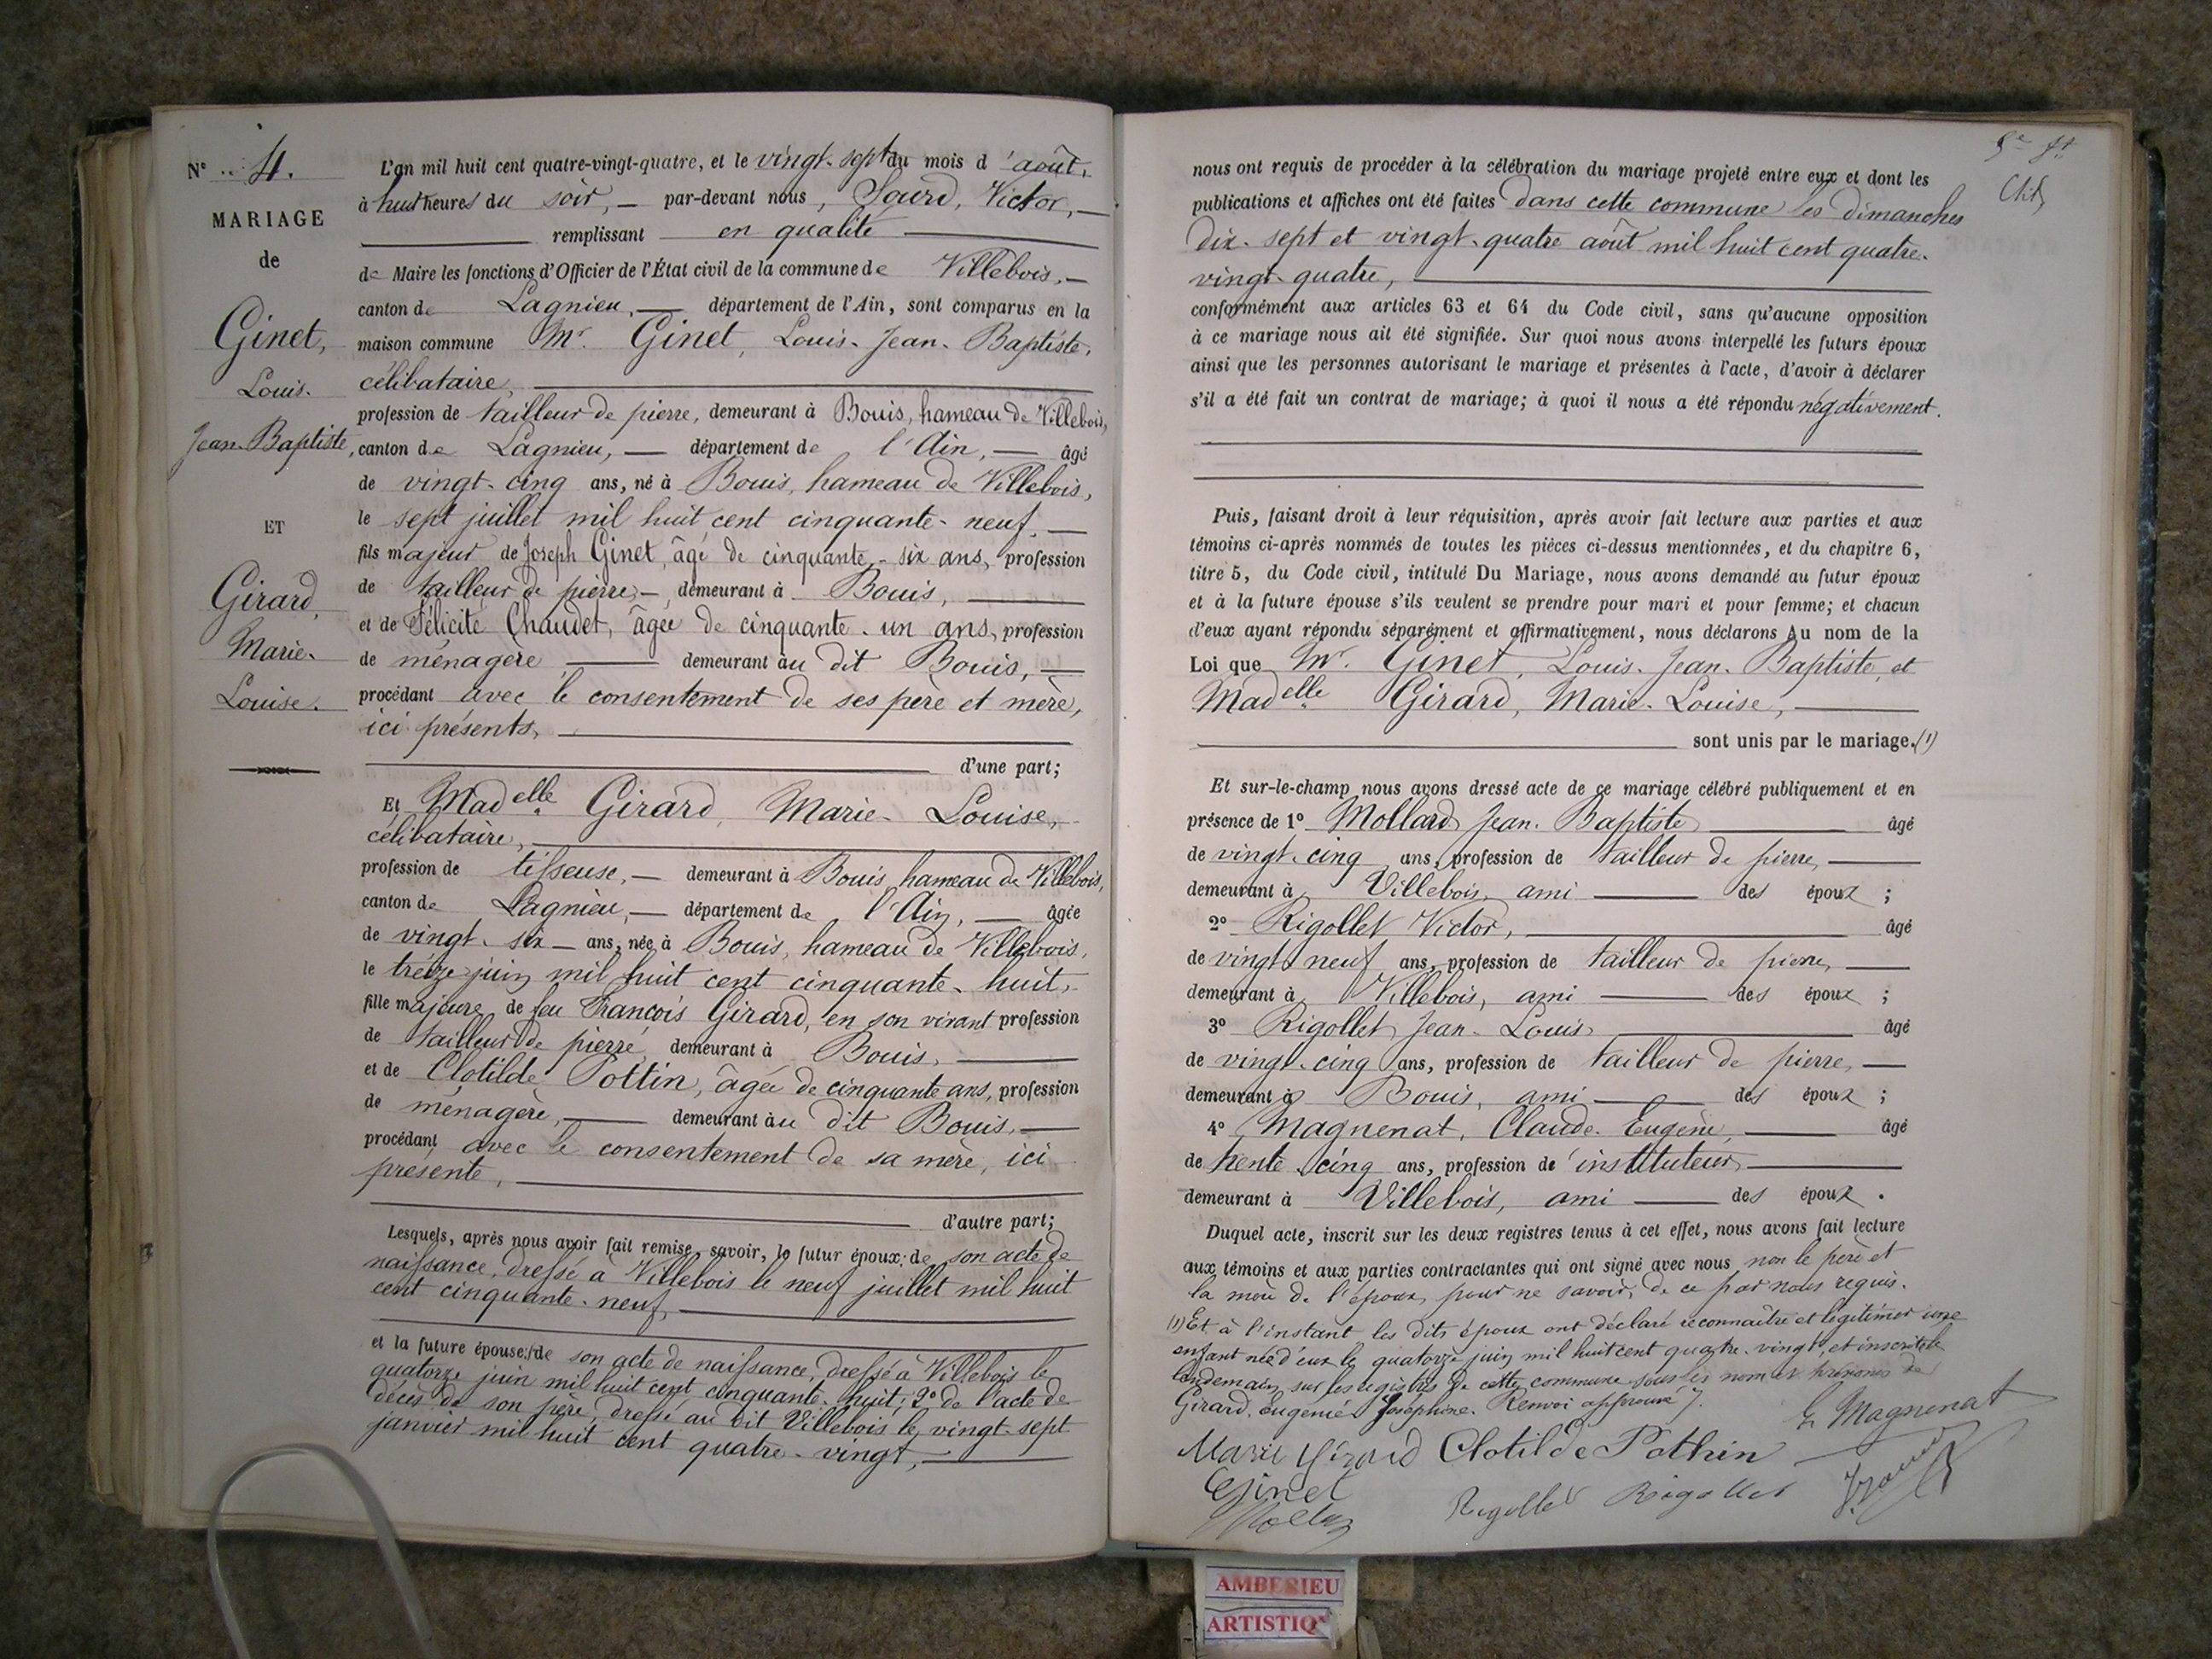 N° 4.
MARIAGE
de
Ginet,
Louis-
Jean-Baptiste,
ET
Girard,
Marie-
Louise.
L'an mil huit cent quatre-vingt-quatre, et le vingt-sept du mois d'août,
à huit heures du soir, — par-devant nous, Sourd, Victor, —
remplissant en qualité
de Maire les fonctions d'Officier de l'État civil de la commune de Villebois, —
canton de Lagnieu, — département de l'Ain, sont comparus en la
maison commune Mr. Ginet, Louis-Jean-Baptiste,
célibataire,
profession de tailleur de pierre, demeurant à Bouis, hameau de Villebois,
canton de Lagnieu, — département de l'Ain, — âgé
de vingt-cinq ans, né à Bouis, hameau de Villebois,
le sept juillet mil huit cent cinquante-neuf, —
fils majeur de Joseph Ginet, âgé de cinquante-six ans, profession
de tailleur de pierre, — demeurant à Bouis,
et de Félicité Chaudet, âgée de cinquante-un ans, profession
de ménagère, — demeurant au dit Bouis, —
procédant avec le consentement de ses père et mère,
ici présents,
d'une part;
Et Madelle Girard, Marie-Louise,
célibataire,
profession de tisseuse, — demeurant à Bouis, hameau de Villebois,
canton de Lagnieu, — département de l'Ain, — âgée
de vingt-six — ans, née à Bouis, hameau de Villebois,
le treize juin mil huit cent cinquante-huit,
fille majeure de feu François Girard, en son vivant profession
de tailleur de pierre, demeurant à Bouis,
et de Clotilde Pottin, âgée de cinquante ans, profession
de ménagère, — demeurant au dit Bouis, —
procédant avec le consentement de sa mère, ici
présente,
d'autre part;
Lesquels, après nous avoir fait remise, savoir, le futur époux: de son acte de
naissance, dressé à Villebois le neuf juillet mil huit
cent cinquante-neuf,
et la future épouse: 1° de son acte de naissance, dressé à Villebois le
quatorze juin mil huit cent cinquante-huit; 2° de l'acte de
décès de son père, dressé au dit Villebois le vingt-sept
janvier mil huit cent quatre-vingt,
nous ont requis de procéder à la célébration du mariage projeté entre eux et dont les
publications et affiches ont été faites dans cette commune les dimanches
dix-sept et vingt-quatre août mil huit cent quatre-
vingt-quatre,
conformément aux articles 63 et 64 du Code civil, sans qu'aucune opposition
à ce mariage nous ait été signifiée. Sur quoi nous avons interpellé les futurs époux
ainsi que les personnes autorisant le mariage et présentes à l'acte, d'avoir à déclarer
s'il a été fait un contrat de mariage; à quoi il nous a été répondu négativement.
Puis, faisant droit à leur réquisition, après avoir fait lecture aux parties et aux
témoins ci-après nommés de toutes les pièces ci-dessus mentionnées, et du chapitre 6,
titre 5, du Code civil, intitulé Du Mariage, nous avons demandé au futur époux
et à la future épouse s'ils veulent se prendre pour mari et pour femme; et chacun
d'eux ayant répondu séparément et affirmativement, nous déclarons Au nom de la
Loi que Mr. Ginet, Louis-Jean-Baptiste, et
Madelle Girard, Marie-Louise,
sont unis par le mariage. (1)
Et sur-le-champ nous avons dressé acte de ce mariage célébré publiquement et en
présence de 1° Mollard Jean-Baptiste âgé
de vingt-cinq ans, profession de tailleur de pierre,
demeurant à Villebois, ami des époux;
2° Rigollet Victor, âgé
de vingt-neuf ans, profession de tailleur de pierre,
demeurant à Villebois, ami des époux;
3° Rigollet Jean-Louis âgé
de vingt-cinq ans, profession de tailleur de pierre, —
demeurant à Bouis, ami des époux;
4° Magnenat, Claude-Eugène, âgé
de trente-cinq ans, profession d'instituteur,
demeurant à Villebois, ami des époux.
Duquel acte, inscrit sur les deux registres tenus à cet effet, nous avons fait lecture
aux témoins et aux parties contractantes qui ont signé avec nous non le père et
la mère de l'époux, pour ne savoir, de ce par nous requis.
(1) Et à l'instant les dits époux ont déclaré reconnaître et légitimer une
enfant née d'eux le quatorze juin mil huit cent quatre-vingt, et inscrite le
lendemain sur les registres de cette commune sous les nom et prénoms de
Girard, Eugénie Joséphine. Renvoi approuvé.
E. Magnenat
Marie Girard Clotilde Pothin
Ginet
Rigollet Rigollet
AMBERIEU
ARTISTIQ